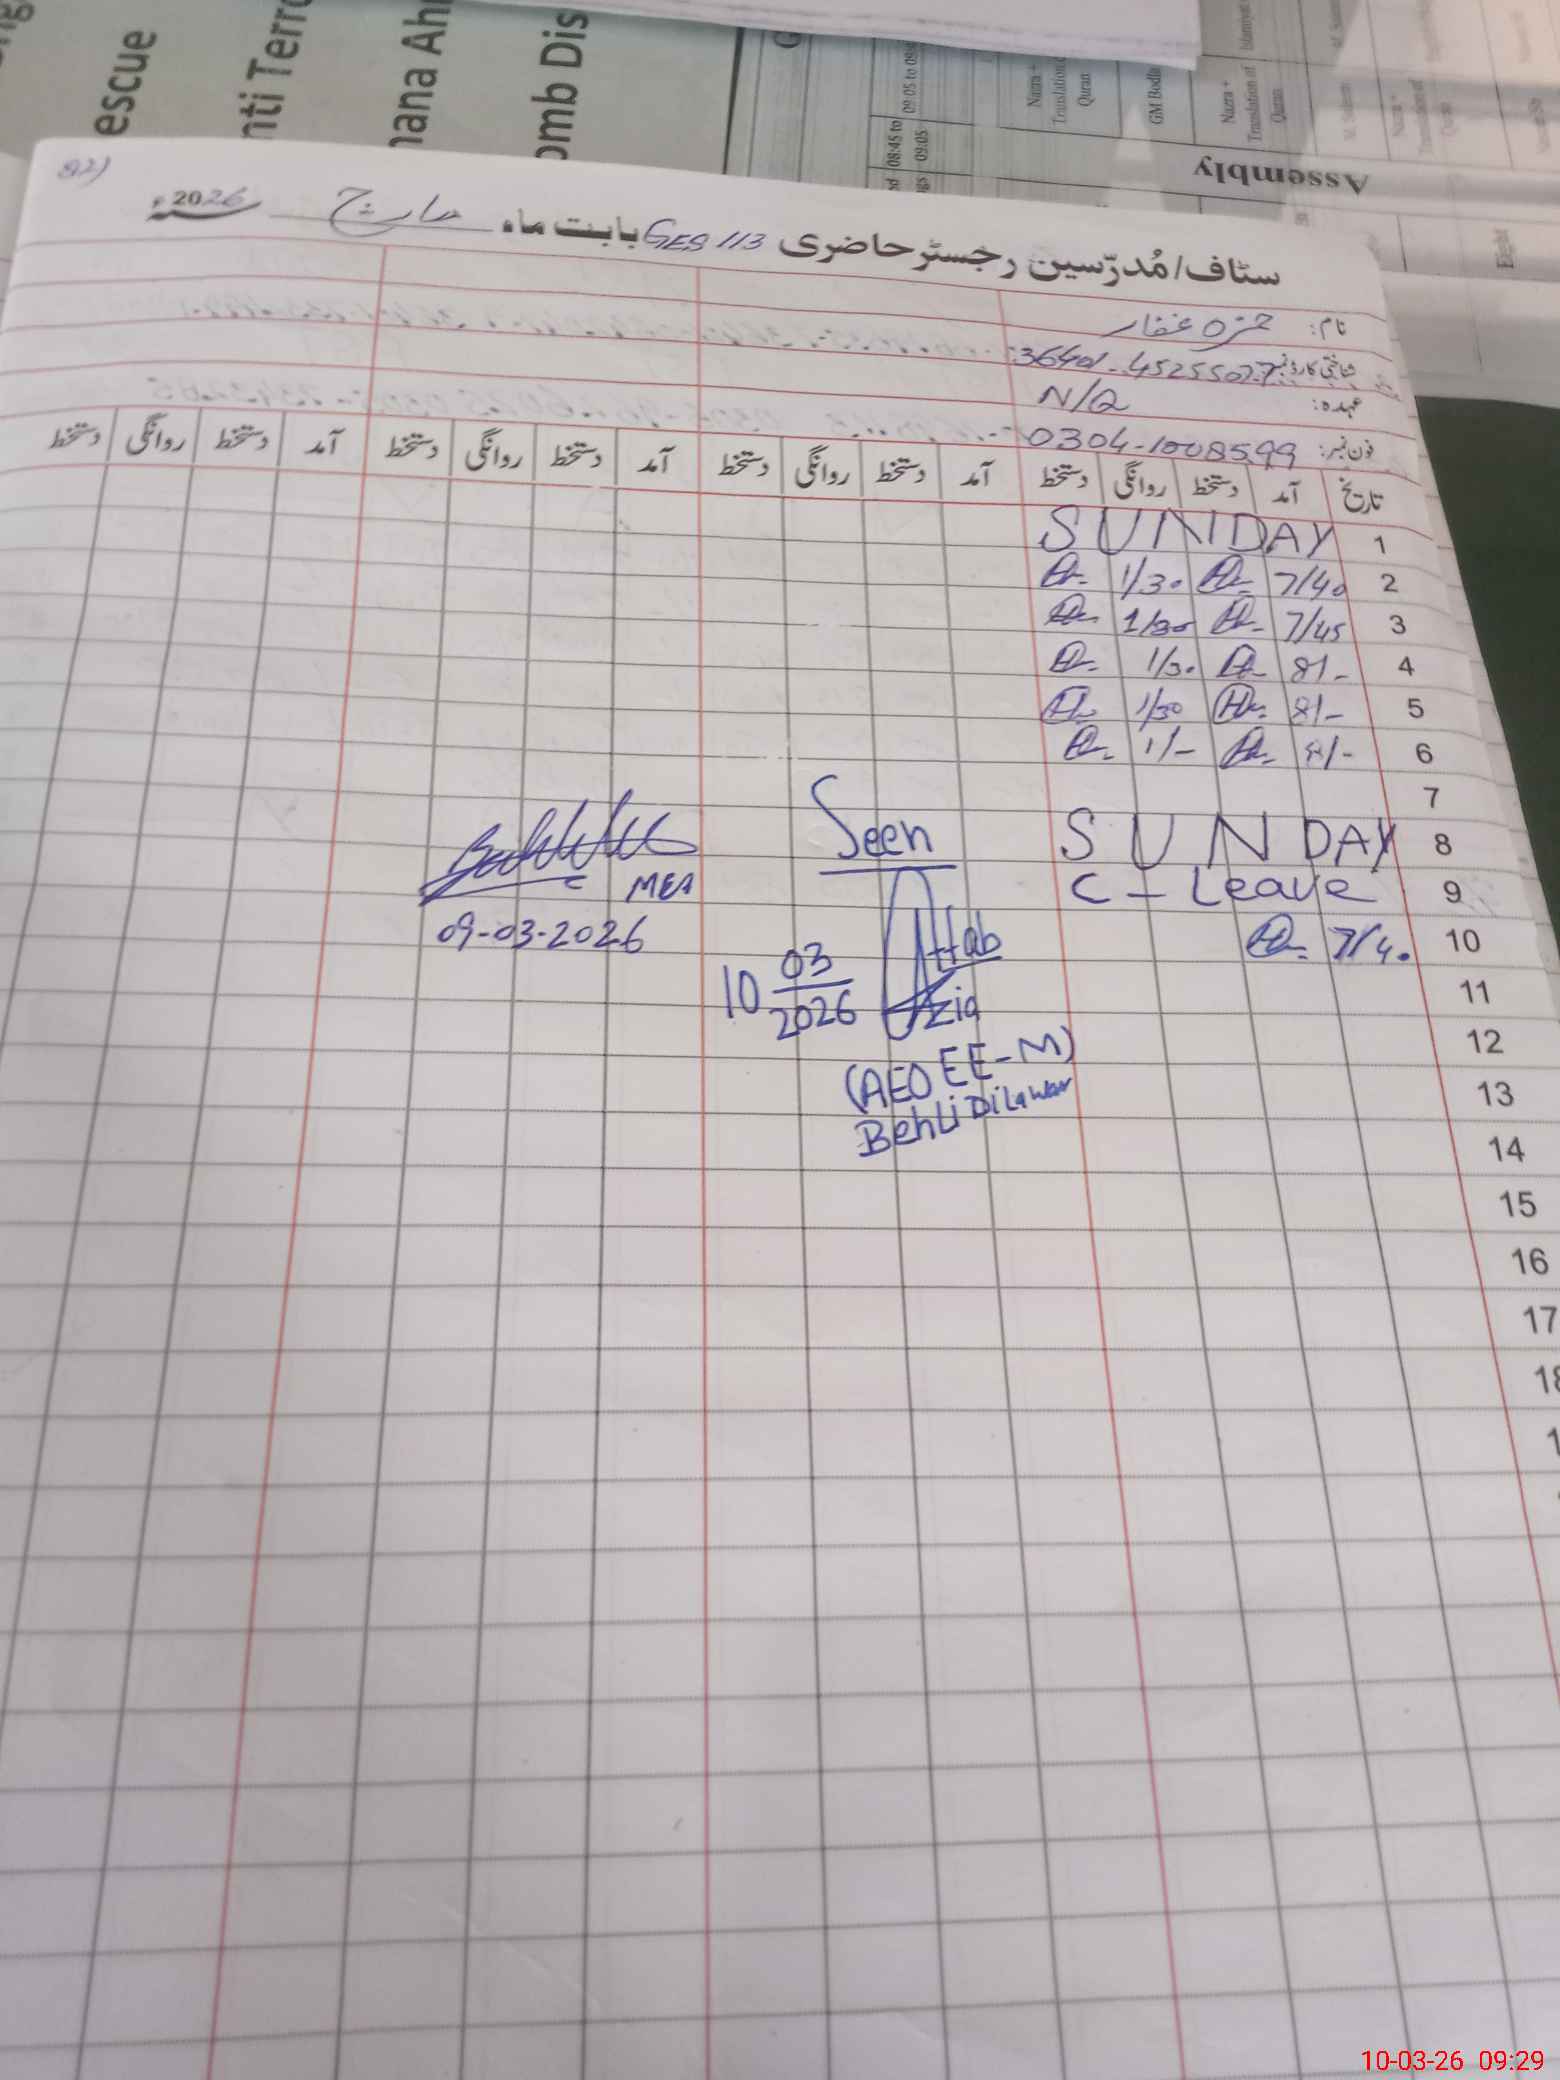 escue
nti Terr
mana Ah
omb Dis
08:45 to
09:05
09:05 to 09:
Nazra +
Translation
Quran
GM Bodla
Nazra +
Translation of
Quran
Assembly
Eight
سٹاف/مُدرّسین رجسٹر حاضری GES 113 بابت ماہ مارچ 2026ء
نام: حمزہ غفار
شناختی کارڈ نمبر:
عہدہ: N/Q
فون نمبر: 0304-1008599
تاریخ آمد دستخط روانگی دستخط آمد دستخط روانگی دستخط آمد دستخط روانگی دستخط آمد دستخط روانگی دستخط
1 SUNDAY
2 7/40 1/30
3 7/45 1/30
4 8/- 1/30
5 8/- 1/30
6 8/- 1/-
7
8 SUNDAY
9 C-Leave
10 7/40
11
12
13
14
15
16
17
18
Seen
MEA
09-03-2026
10 03
2026
Aftab
Zia
(AEO EE-M)
Behli Dilawar
10-03-26 09:29